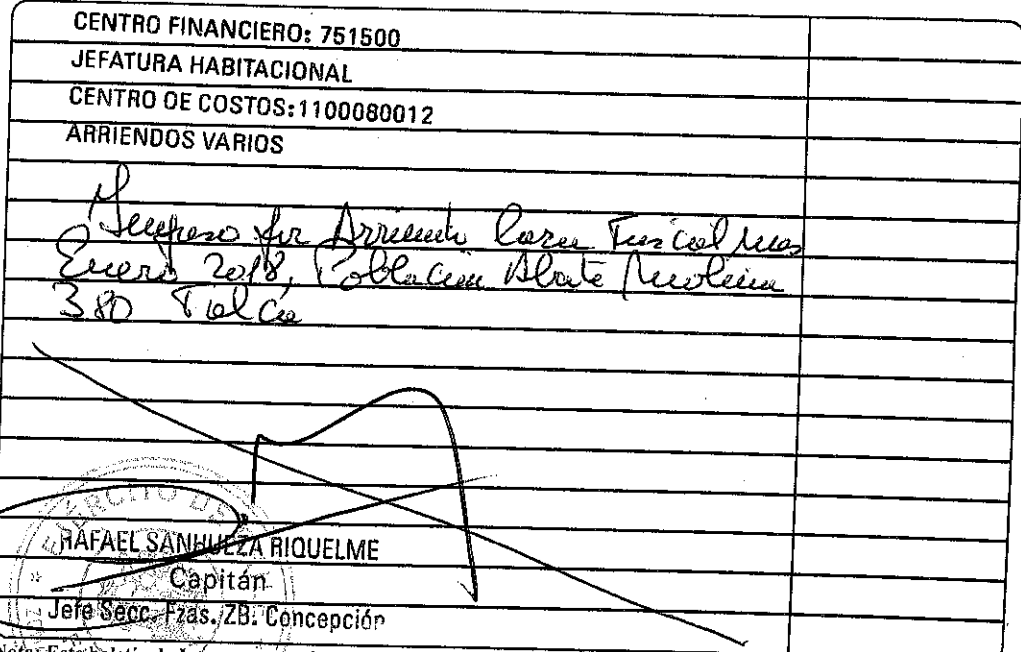 CENTRO FINANCIERO: 751500
JEFATURA HABITACIONAL
CENTRO DE COSTOS:1100080012
ARRIENDOS VARIOS
por Arriendo Casa Fiscal mes
Enero 2018, Población Abate Molina
380 Talca
EJÉRCITO DE
RAFAEL SANHUEZA RIQUELME
Capitán
Jefe Secc. Fzas. ZB. Concepción